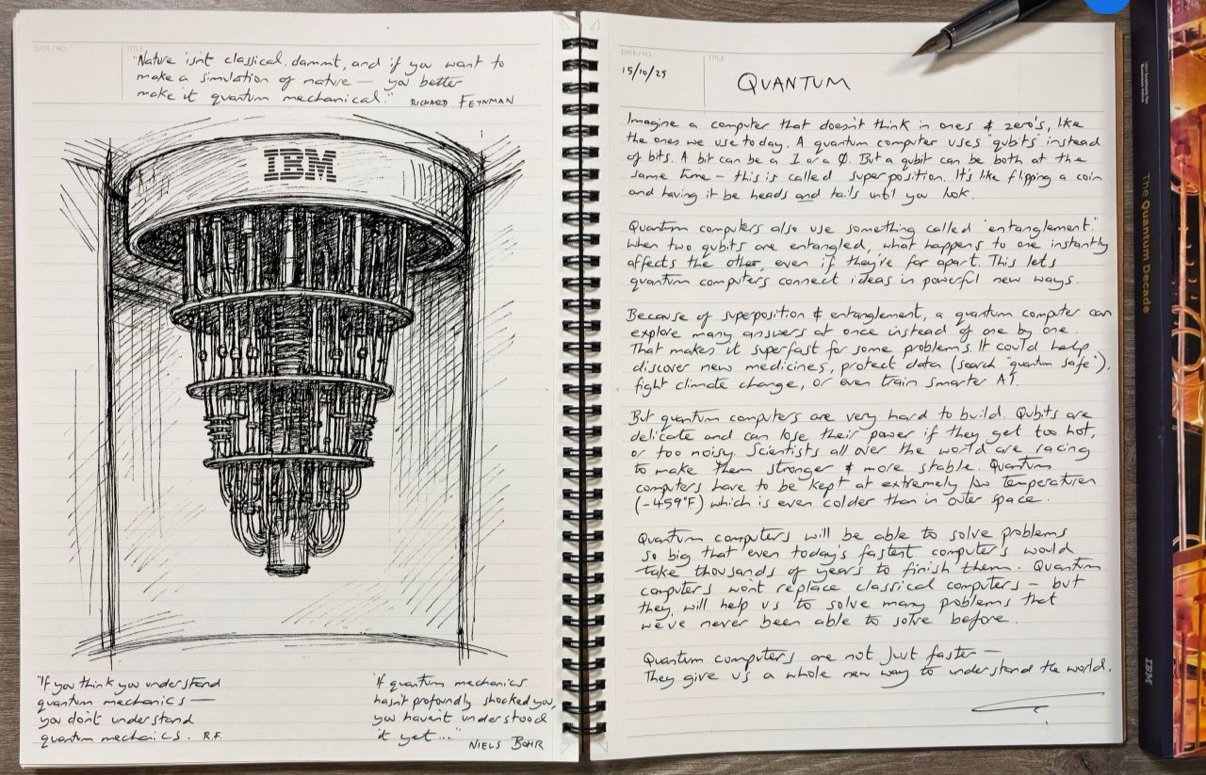 DATE / NO.
TITLE
"Nature isn't classical, dammit, and if you want to
make a simulation of nature — you better
make it quantum mechanical." RICHARD FEYNMAN
IBM
"If you think you understand
quantum mechanics —
you don't understand
quantum mechanics. R.F.
"If quantum mechanics
hasn't profoundly shocked you,
you haven't understood
it yet..."
NIELS BOHR
DATE / NO.
TITLE
15/10/25
QUANTUM
Imagine a computer that doesn't think in ones & zero's, like
the ones we use today. A quantum computer uses 'qubits' instead
of bits. A bit can be a 1 or a 0. But a qubit can be both at the
same time — this is called superposition. It's like flipping a coin
and having it be heads and tails until you look.
Quantum computers also use something called "entanglement".
When two qubits are entangled, what happens to one instantly
affects the other, even if they're far apart. This lets
quantum computers connect ideas in powerful new ways.
Because of superposition & entanglement, a quantum computer can
explore many answers at once instead of one by one.
That makes it superfast for some problems. It could help
discover new medicines, protect data (search "quantum safe"),
fight climate change, or even train smarter AI.
But quantum computers are very hard to build. Qubits are
delicate and can lose their power if they get too hot,
or too noisy. Scientists all over the world are racing
to make them stronger & more stable. Quantum
computers have to be kept at extremely low temperatures
(-459°F) which is even colder than in outer space.
Quantum computers will be able to solve problems
so big that even today's fastest computers would
take thousands of years to finish them. Quantum
computers won't replace classical computers, but
they will help us to solve many problems that
we've never been able to solve before.
Quantum computers are not just faster —
They give us a whole new way to understand the world.
The Quantum Decade
IBM